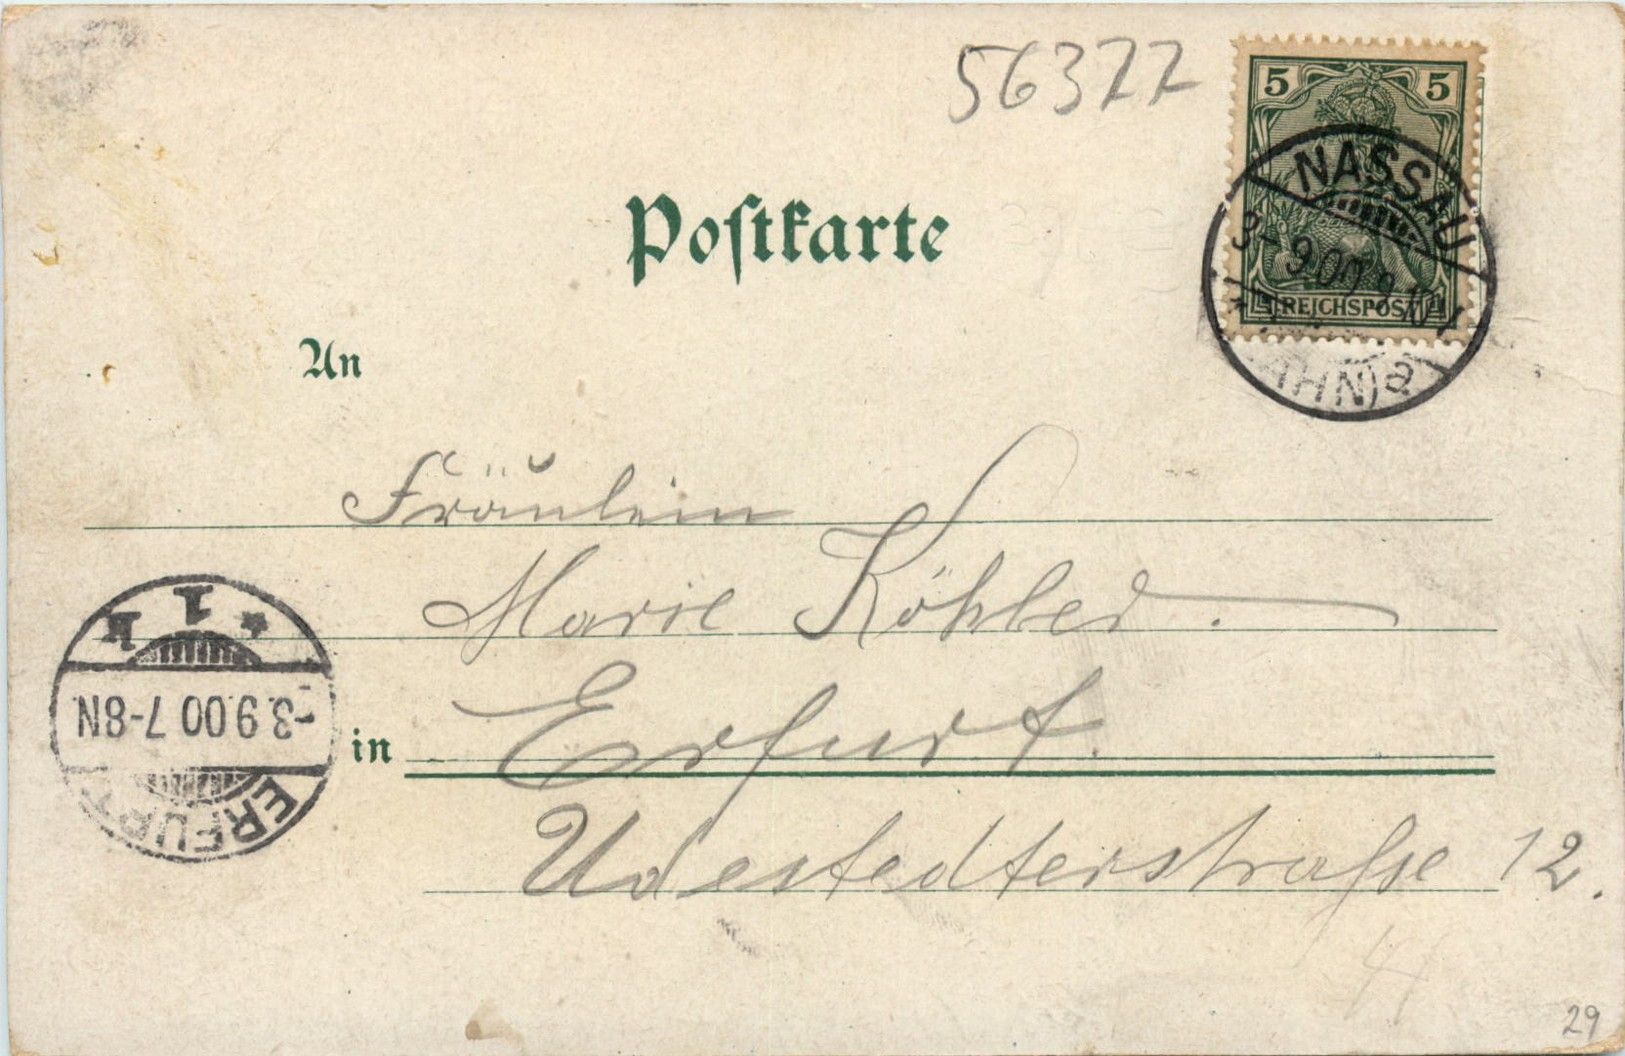 56377
5 5
NASSAU
3-9.00.
REICHSPOST
AHN) a
Postkarte
An
Fräulein
Marie Köhler.
in Erfurt.
Udestedterstraße 12.
* 1 k
-3.9.00 7-8N.
ERFURT
29